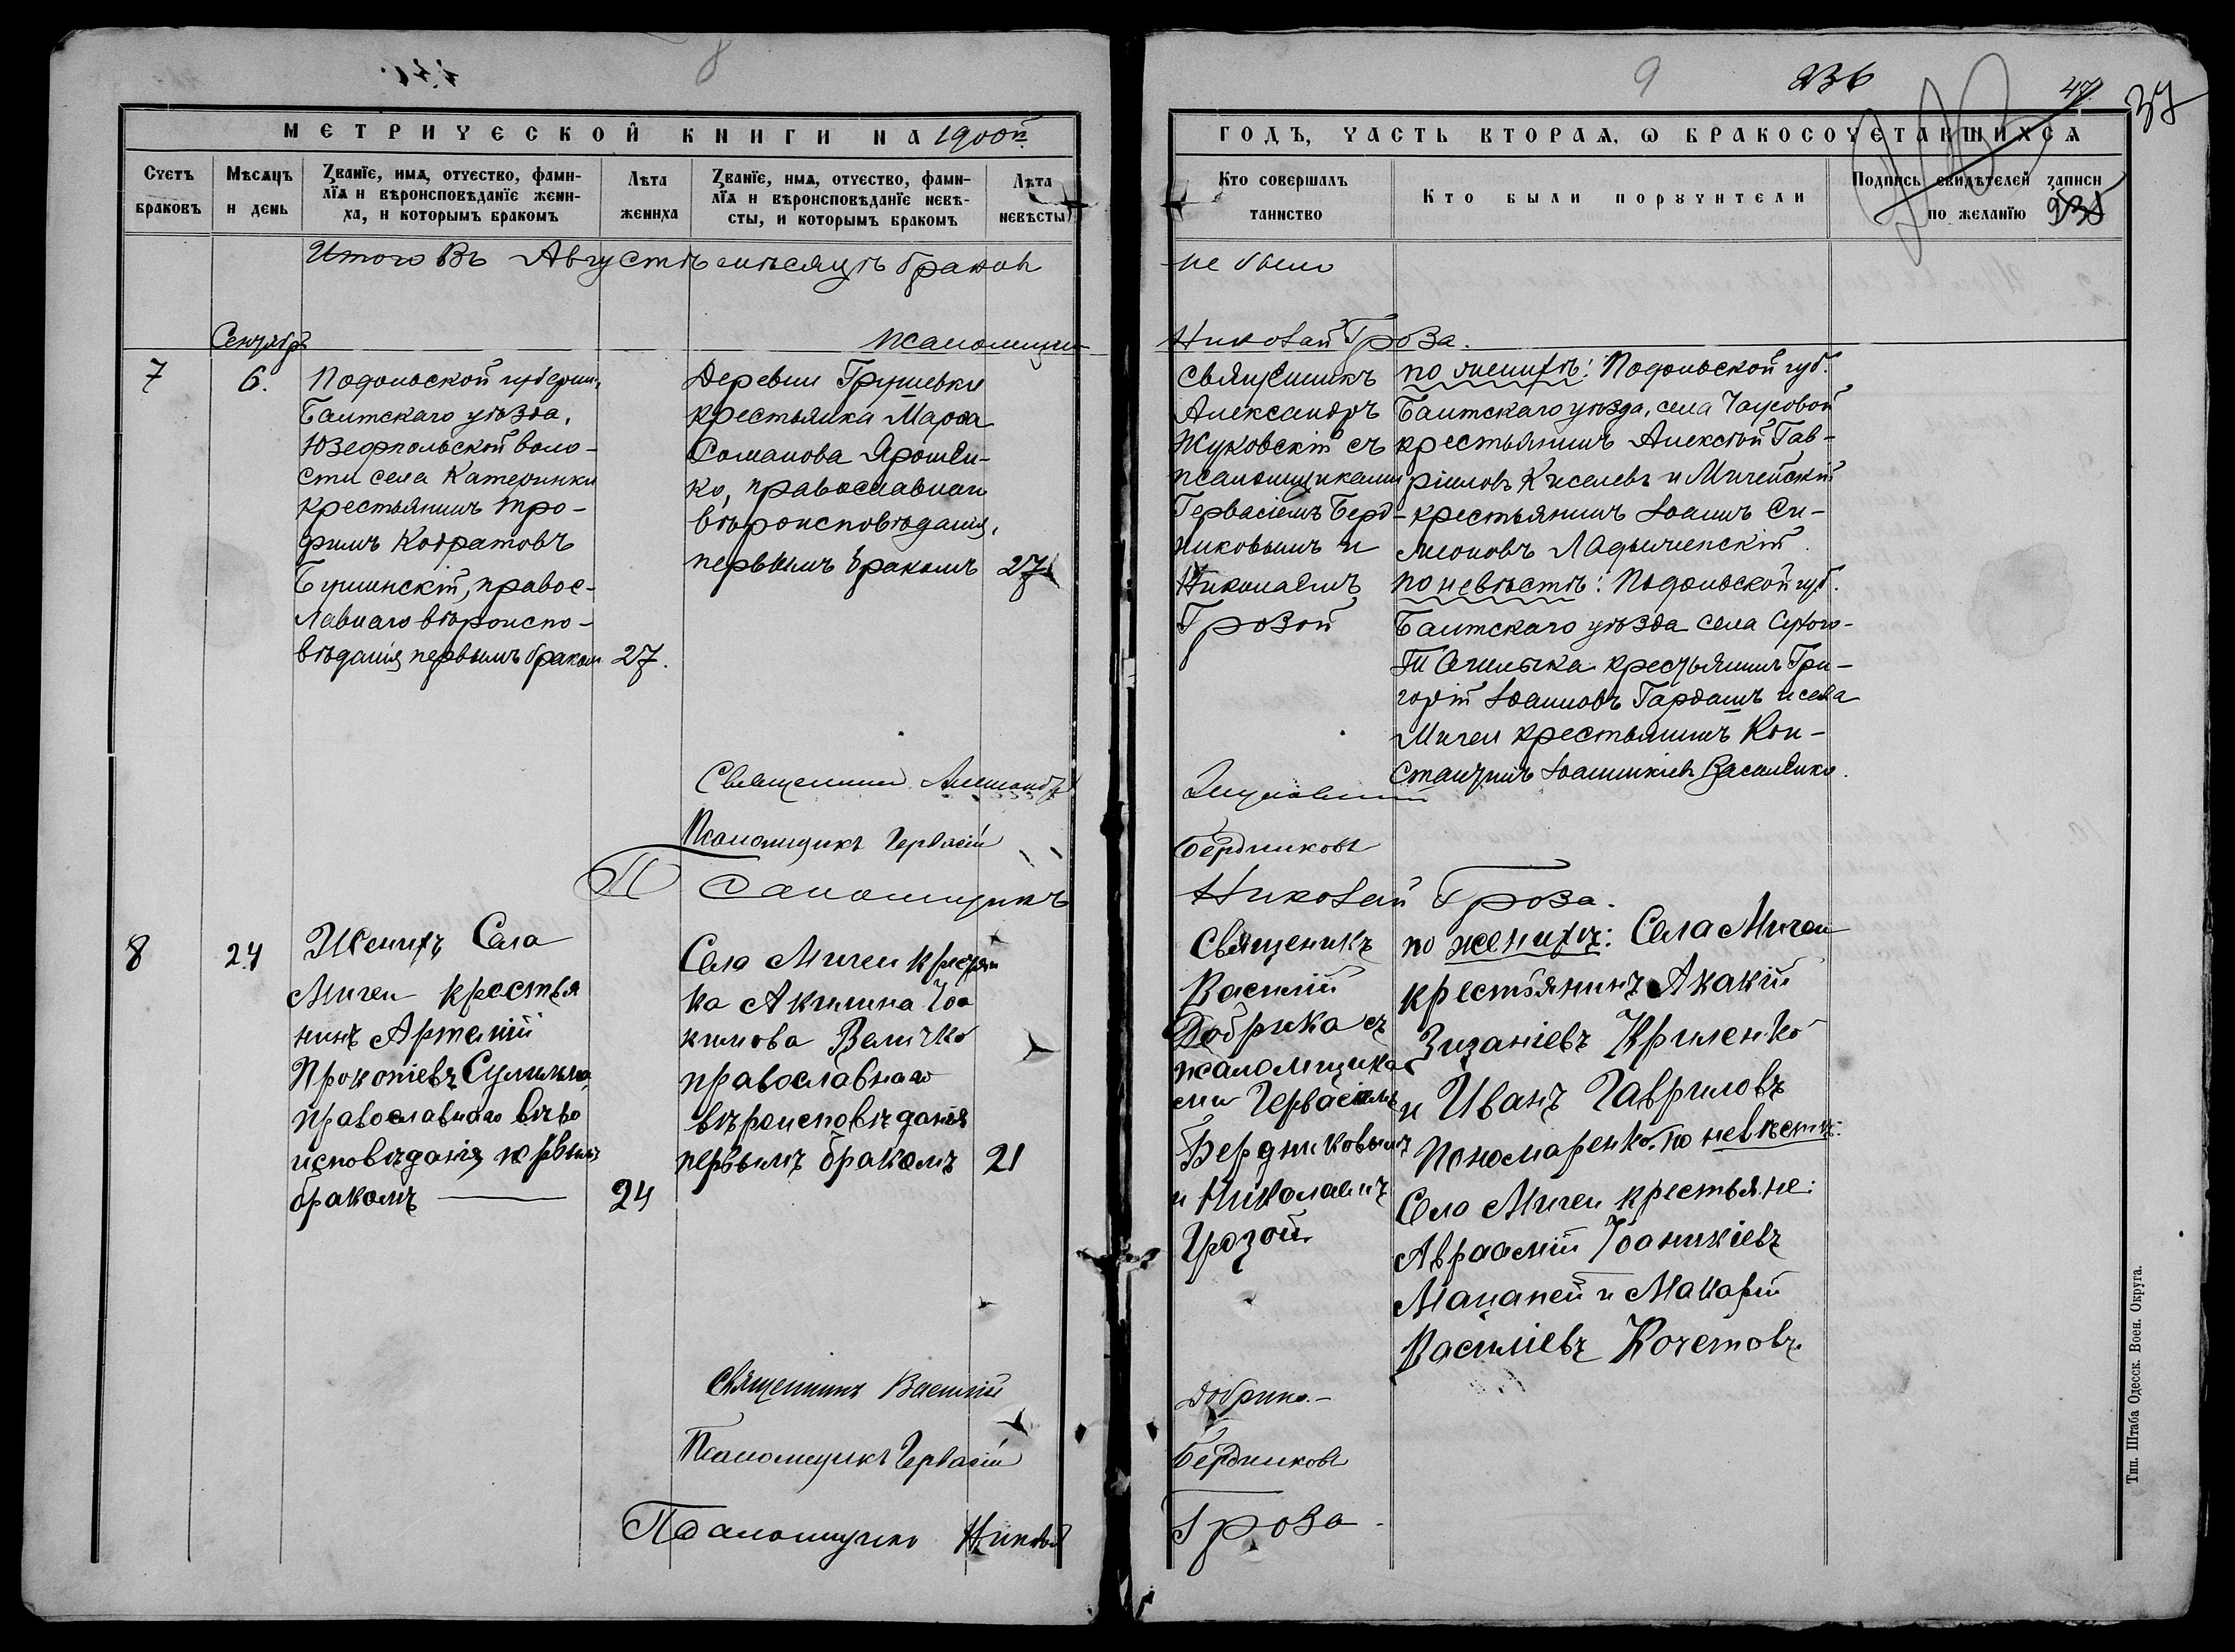 8
9
236
47
37
МЕТРИЧЕСКОЙ КНИГИ НА 1900й
ГОДЪ, ЧАСТЬ ВТОРАЯ, Ѡ БРАКОСОЧЕТАВШИХСЯ
Счетъ браковъ
Мѣсяцъ и день
Званїе, имя, отчество, фами-
лїя и вѣроисповѣданїе жени-
ха, и которымъ бракомъ
Лѣта жениха
Званїе, имя, отчество, фами-
лїя и вѣроисповѣданїе невѣ-
сты, и которымъ бракомъ
Лѣта невѣсты
Кто совершалъ таинство
Кто были поручители
Подпись свидѣтелей записи
по желанїю 235
Итого въ Августѣ мѣсяцѣ браковъ
не было
Псаломщик
Николай Гроза.
Сентябр
7
6.
Подольской губерніи,
Балтскаго уѣзда,
Юзефпольской воло-
сти села Катеринки
крестьянинъ Тро-
фимъ Кодратовъ
правос-
лавнаго вѣроиспо-
вѣданія, первымъ браком
27.
Деревни Грушевки
крестьянка Марѳа
Романова Ярошен-
ко, православнаго
вѣроисповѣданія,
первымъ бракомъ
27
Священникъ
Александръ
Жуковскій съ
псаломщиками
Гервасіемъ Берд-
никовымъ и
Николаемъ
Грозой
по женихѣ: Подольской губ.
Балтскаго уѣзда, села Чаусовой
крестьянинъ Алексѣй Гав-
ріиловъ Киселевъ и Мигейскій
крестьянинъ Іоаннъ Си-
моновъ Ладыженскій.
по невѣстѣ: Подольской губ.
Балтскаго уѣзда села Сухого-
Ташлыка крестьянинъ Гри-
горій Іоанновъ Гардашъ и села
Мигеи крестьянинъ Кон-
стантинъ Іоанникіевъ Василенко.
Священникъ Александръ
Жуковский
Псаломщикъ Гервасій
Бердниковъ
Псаломщикъ
Николай Гроза.
8
24
Женихъ Села
Мигеи крестья
нинъ Артемій
Прокопіевъ
православнаго вѣро
исповѣданія первымъ
бракомъ
24
Села Мигеи крестьян
ка Акилина Іоа
кимова Величко
православнаго
вѣроисповѣданія
первымъ бракомъ
21
Священикъ
Василій
Добрика съ
псаломщика
ми Гервасіемъ
Бердниковымъ
и Николаемъ
Грозой
по женихѣ: Села Мигеи
крестьянинъ Акакій
Зизаніевъ Криленко
и Иванъ Гавриловъ
Пономаренко. по невѣстѣ:
Села Мигеи крестьяне:
Авраамій Іоаникіевъ
и Макарій
Василіевъ Кочетовъ.
Священникъ Василій
Добрика.
Псаломщикъ Гервасій
Бердниковъ
Псаломщикъ Николай
Гроза.
Тип. Штаба Одесск. Воен. Округа.